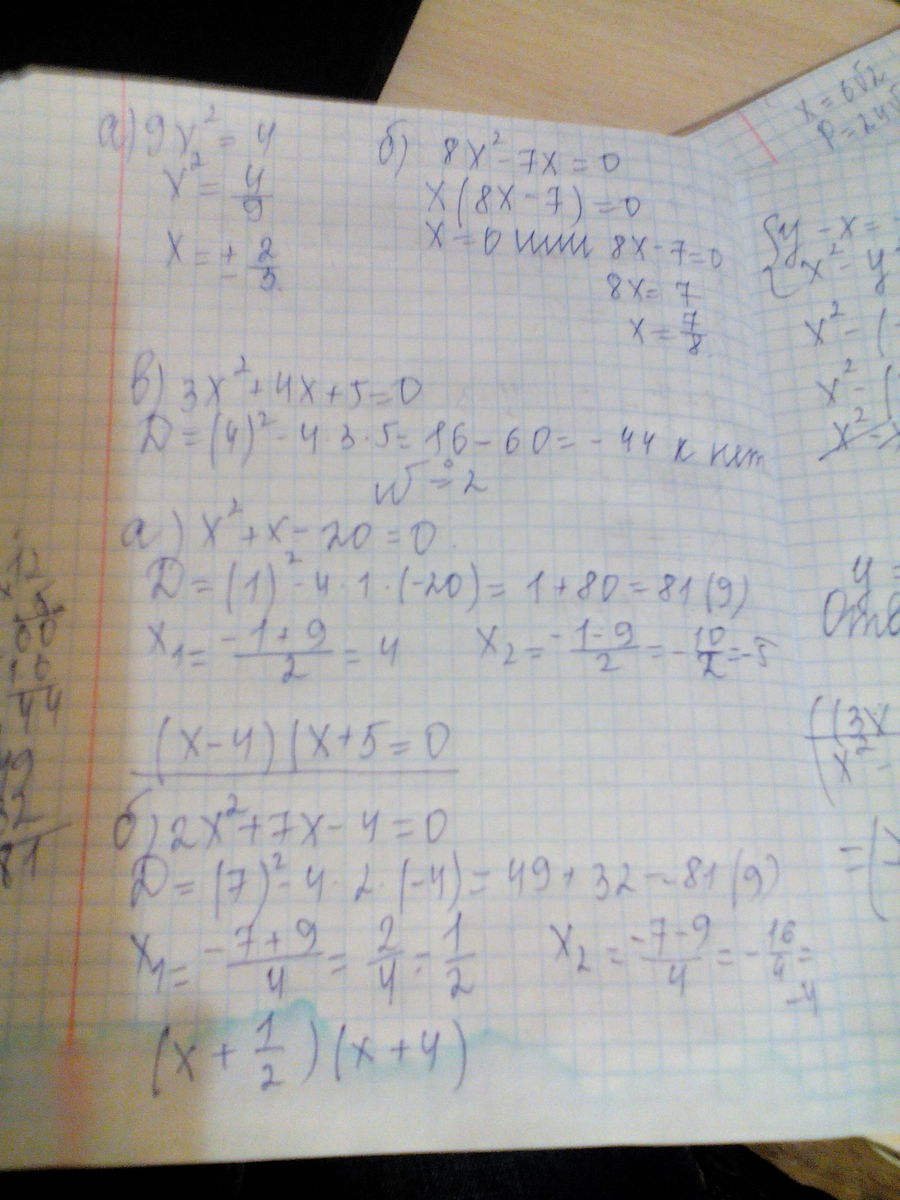 а) 9x² = 4
x² = 4/9
x = ± 2/3.
б) 8x² - 7x = 0
x(8x - 7) = 0
x = 0 или 8x - 7 = 0
8x = 7
x = 7/8
в) 3x² + 4x + 5 = 0
D = (4)² - 4 · 3 · 5 = 16 - 60 = - 44 к нет
№ 2
а) x² + x - 20 = 0.
D = (1)² - 4 · 1 · (-20) = 1 + 80 = 81 (9)
x₁ = (-1 + 9)/2 = 4 x₂ = (-1 - 9)/2 = - 10/2 = -5
(x - 4)(x + 5 = 0
б) 2x² + 7x - 4 = 0
D = (7)² - 4 · 2 · (-4) = 49 + 32 = 81 (9)
x₁ = (-7 + 9)/4 = 2/4 = 1/2 x₂ = (-7 - 9)/4 = - 16/4 =
-4
(x + 1/2)(x + 4)
x = 6√2
P = 24√
{y - x =
x² - y
x² - (
x² - (
x² - x
y =
Отв
((3x
x² -
= (
12
5
60
16
44
49
32
81